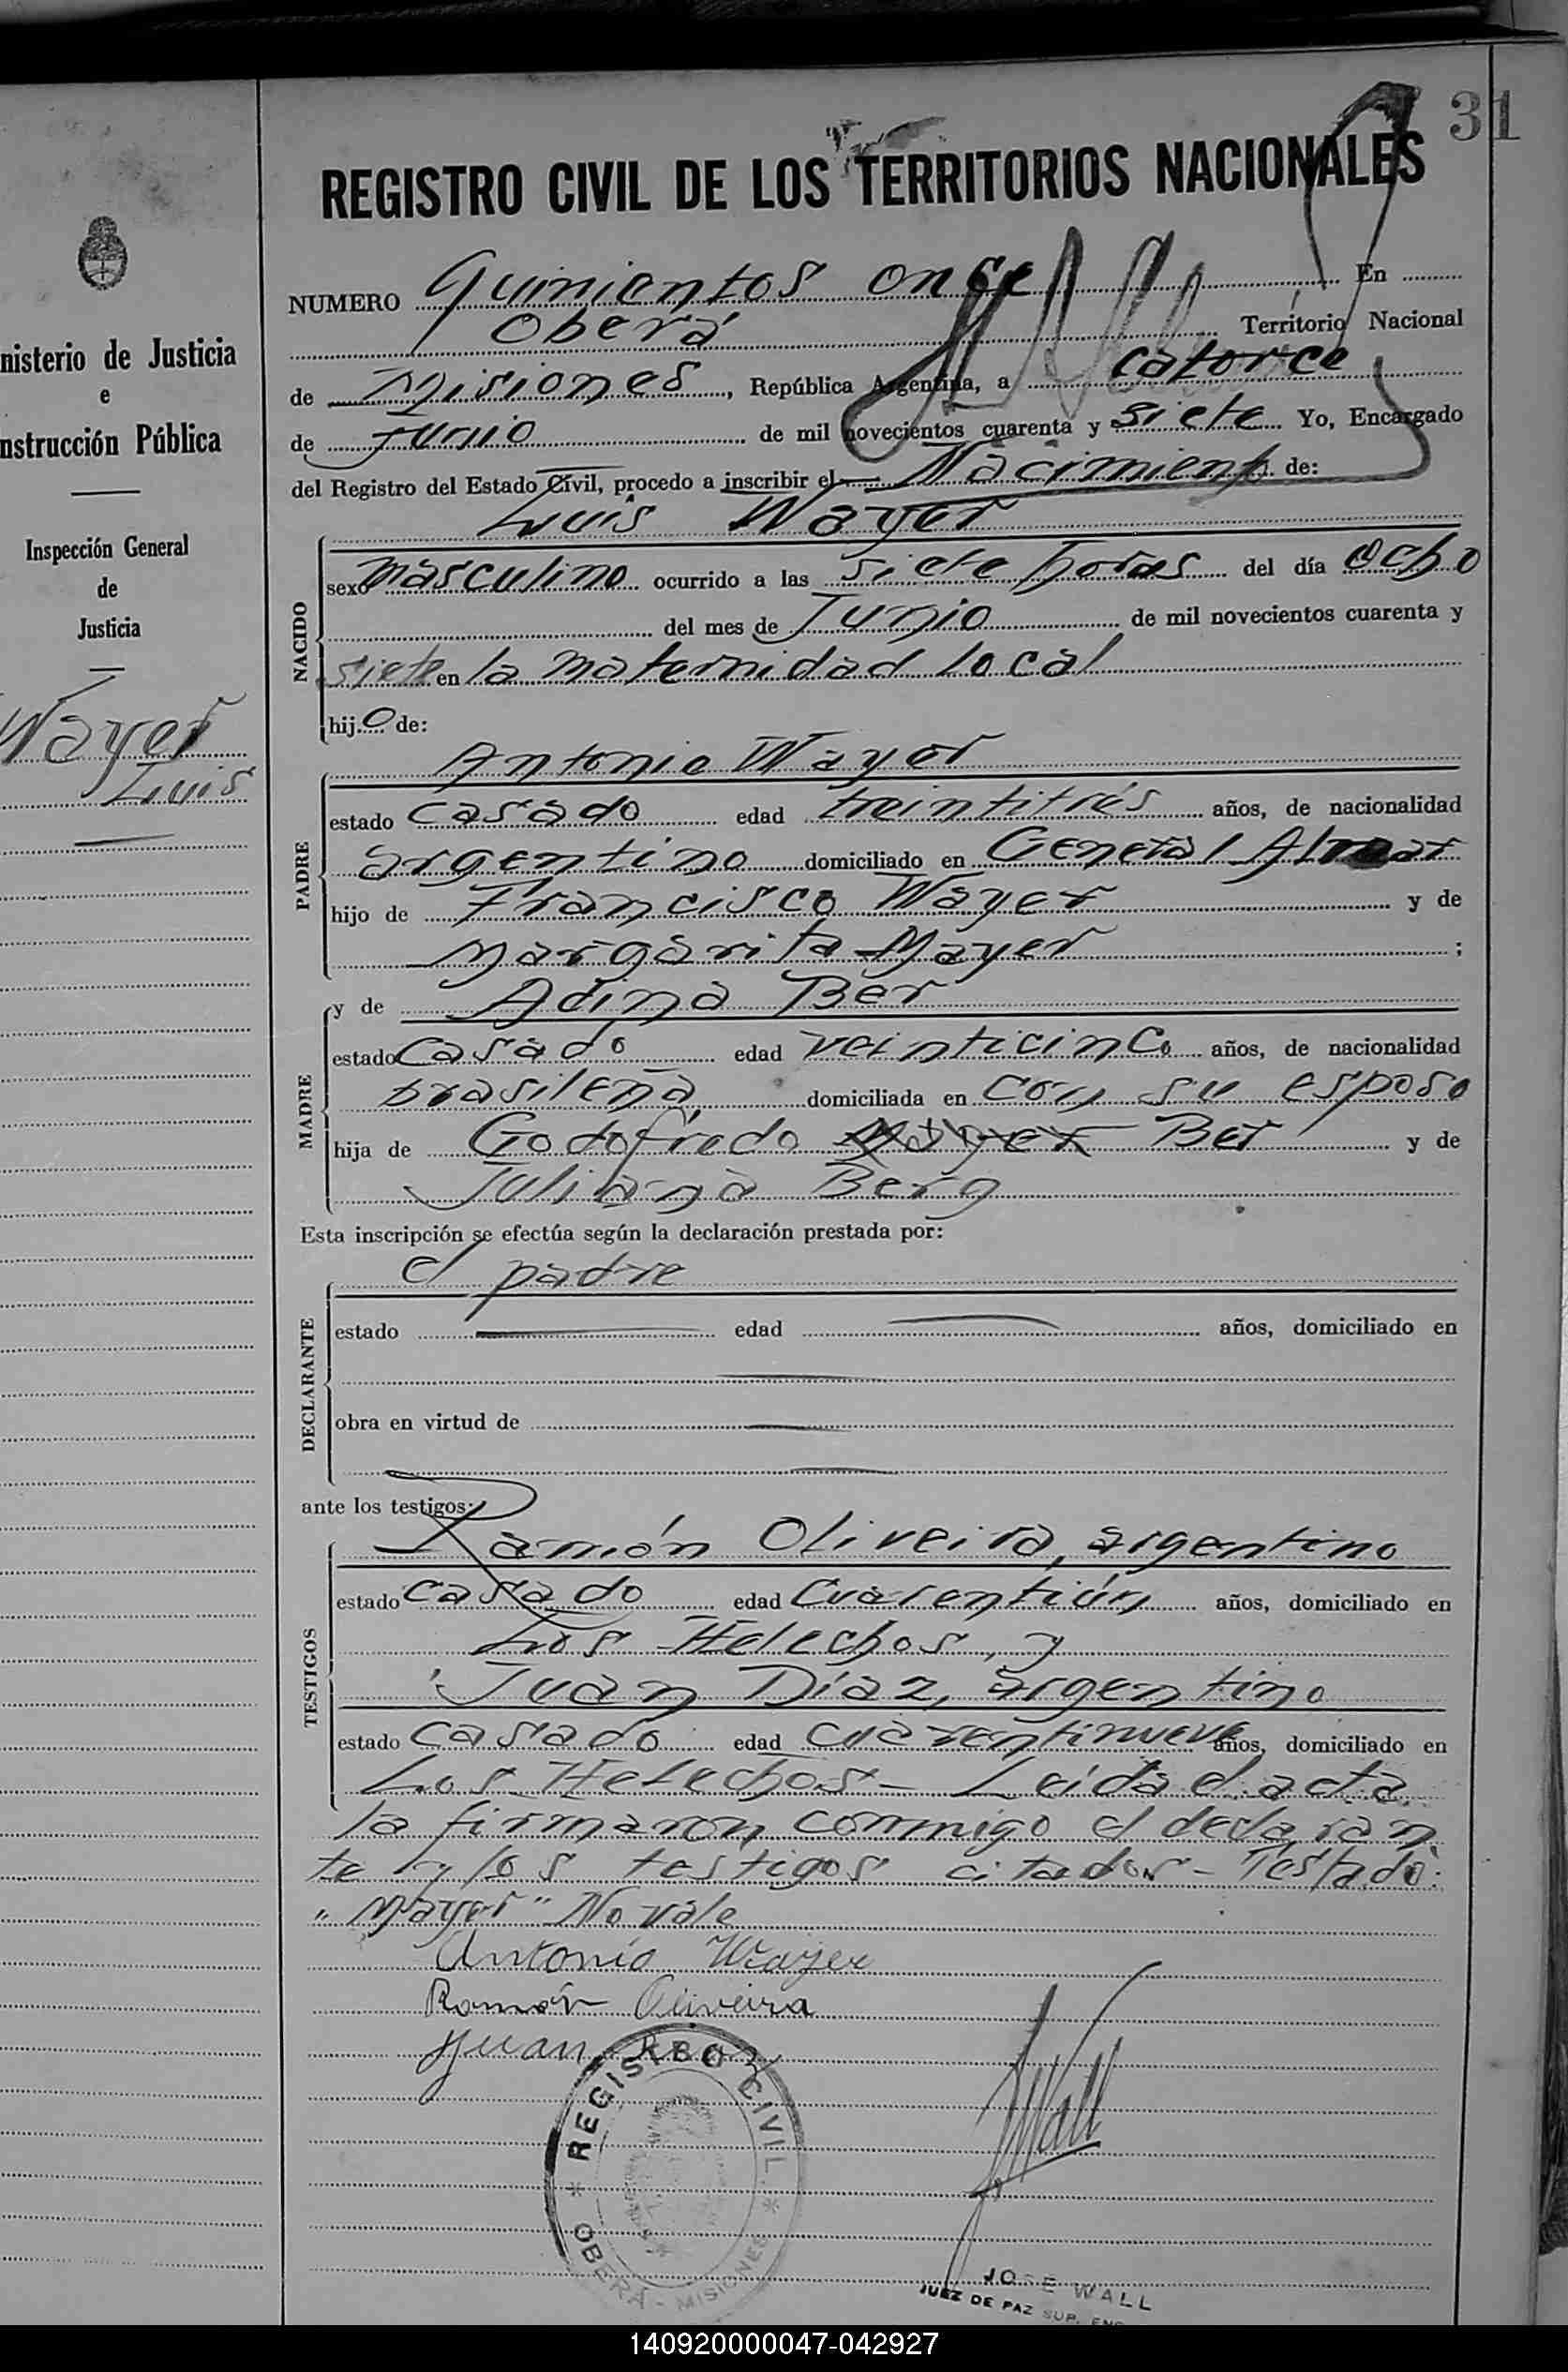 31
REGISTRO CIVIL DE LOS TERRITORIOS NACIONALES
NUMERO Quinientos once En
Oberá Territorio Nacional
de Misiones, República Argentina, a catorce
de Junio de mil novecientos cuarenta y siete Yo, Encargado
del Registro del Estado Civil, procedo a inscribir el Nacimiento de:
Luis Wayer
NACIDO
sexo masculino ocurrido a las siete horas del día ocho
del mes de Junio de mil novecientos cuarenta y
siete en la maternidad local
hijo de:
Antonio Wayer
PADRE
estado casado edad treintitrés años, de nacionalidad
argentino domiciliado en General
hijo de Francisco Wayer y de
Margarita Mayer ;
y de Adina Ber
MADRE
estado casado edad veinticinco años, de nacionalidad
brasileña domiciliada en con su esposo
hija de Godofredo Mayer Ber y de
Juliana Berg
Esta inscripción se efectúa según la declaración prestada por:
el padre
DECLARANTE
estado edad años, domiciliado en
obra en virtud de
ante los testigos:
Ramón Oliveira, argentino
TESTIGOS
estado casado edad cuarentiún años, domiciliado en
Los Helechos, y
Juan Díaz, argentino
estado casado edad cuarentinueve años, domiciliado en
Los Helechos - Leída el acta
la firmaron conmigo el declaran
te y los testigos citados - Testado:
"Mayer" No vale
Antonio Wayer
Ramón Oliveira
Juan
REGISTRO CIVIL
* OBERÁ - MISIONES *
JWall
JOSE WALL
JUEZ DE PAZ SUP.
nisterio de Justicia
e
nstrucción Pública
Inspección General
de
Justicia
Wayer
Luis
140920000047-042927